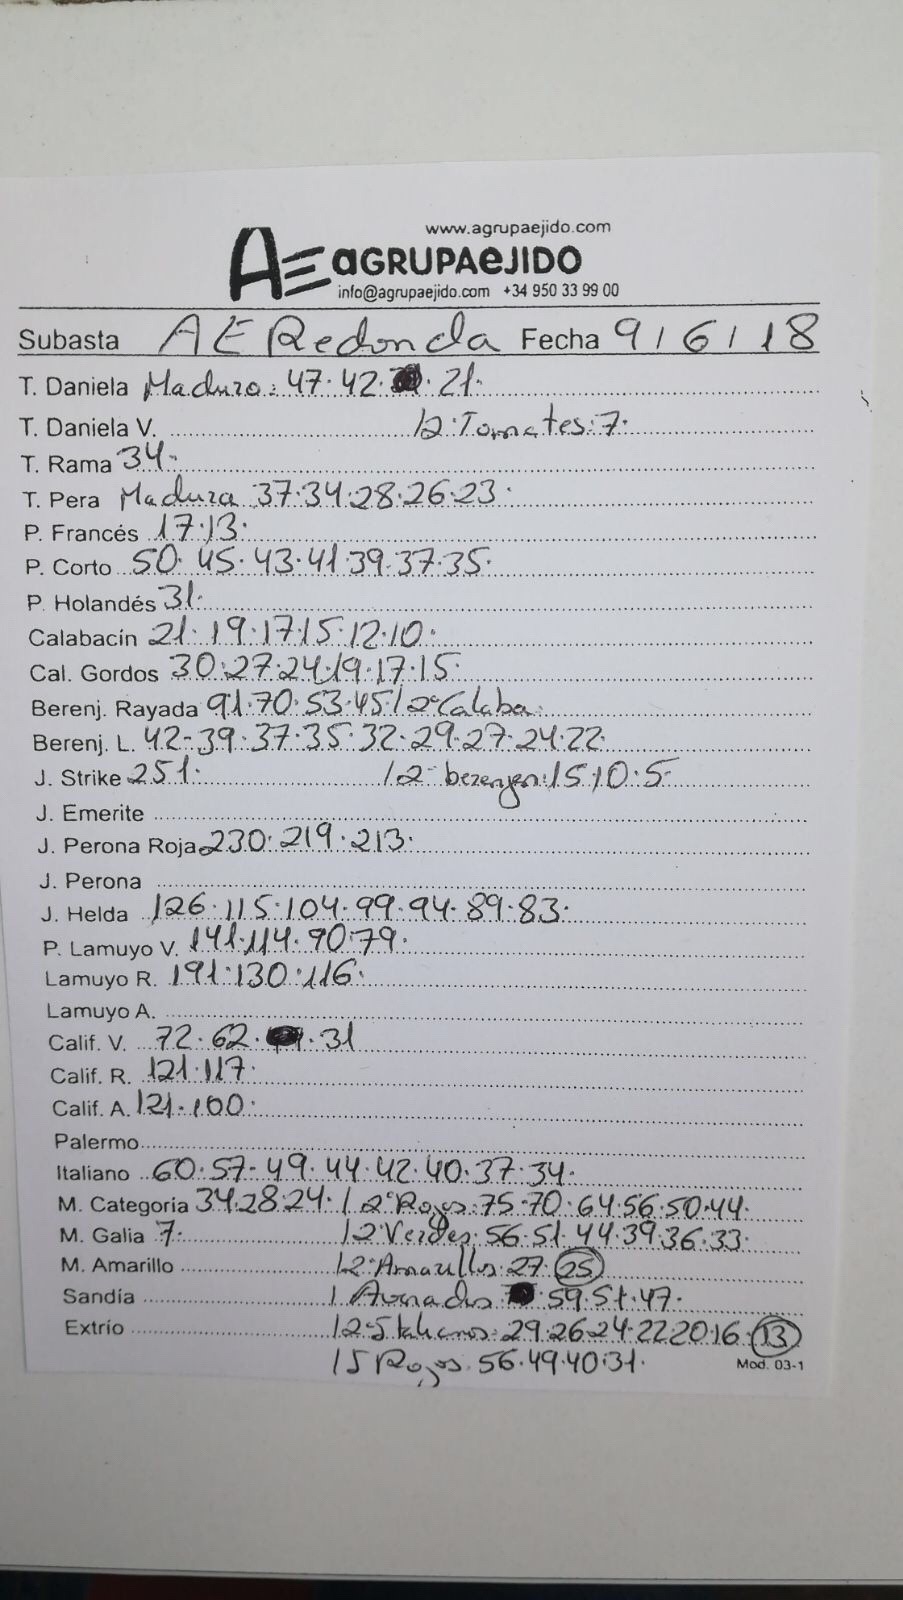 www.agrupaejido.com
AE aGRUPAeJIDO
info@agrupaejido.com +34 950 33 99 00
Subasta AE Redonda Fecha 9/6/18
T. Daniela Maduro: 47·42· ·21·
T. Daniela V. /2·Tomates:7·
T. Rama 34·
T. Pera Madura 37·34·28·26·23·
P. Francés 17·13·
P. Corto 50·45·43·41·39·37·35·
P. Holandés 31·
Calabacín 21·19·17·15·12·10·
Cal. Gordos 30·27·24·19·17·15·
Berenj. Rayada 91·70·53·45·/2ªCalaba·
Berenj. L. 42-39·37·35·32·29·27·24·22·
J. Strike 251· /2·berenjen:15·10·5·
J. Emerite
J. Perona Roja 230·219·213·
J. Perona
J. Helda 126·115·104·99·94·89·83·
P. Lamuyo V. 141·114·90·79·
Lamuyo R. 191·130·116·
Lamuyo A.
Calif. V. 72·62· ·31
Calif. R. 121·117·
Calif. A. 121·100·
Palermo
Italiano 60·57-49·44·42·40·37·34·
M. Categoria 34·28·24·/2ªRojos:75·70·64·56·50·44·
M. Galia 7· /2·Verdes:56·51·44·39·36·33·
M. Amarillo /2·Amarillos·27·25
Sandía / Asurados 59·51·47·
Extrío /2·Italianos:29·26·24·22·20·16·13
/S Rojos:56·49·40·31·
Mod. 03-1